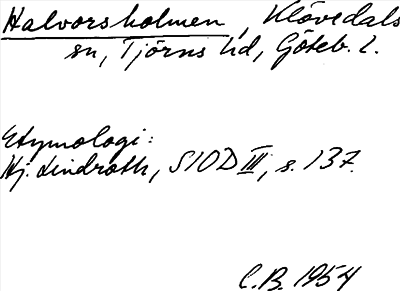 Halvorsholmen, Klövedals
sn, Tjörns hd, Göteb. l.
Etymologi:
Hj. Lindroth, SIOD III, s. 137.
C.B. 1954